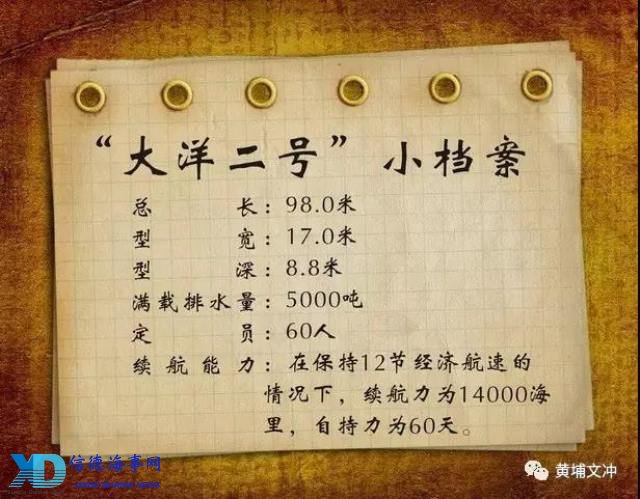 “大洋二号”小档案
总长：98.0米
型宽：17.0米
型深：8.8米
满载排水量：5000吨
定员：60人
续航能力：在保持12节经济航速的
情况下，续航力为14000海
里，自持力为60天。
XD 信德海事网
黄埔文冲